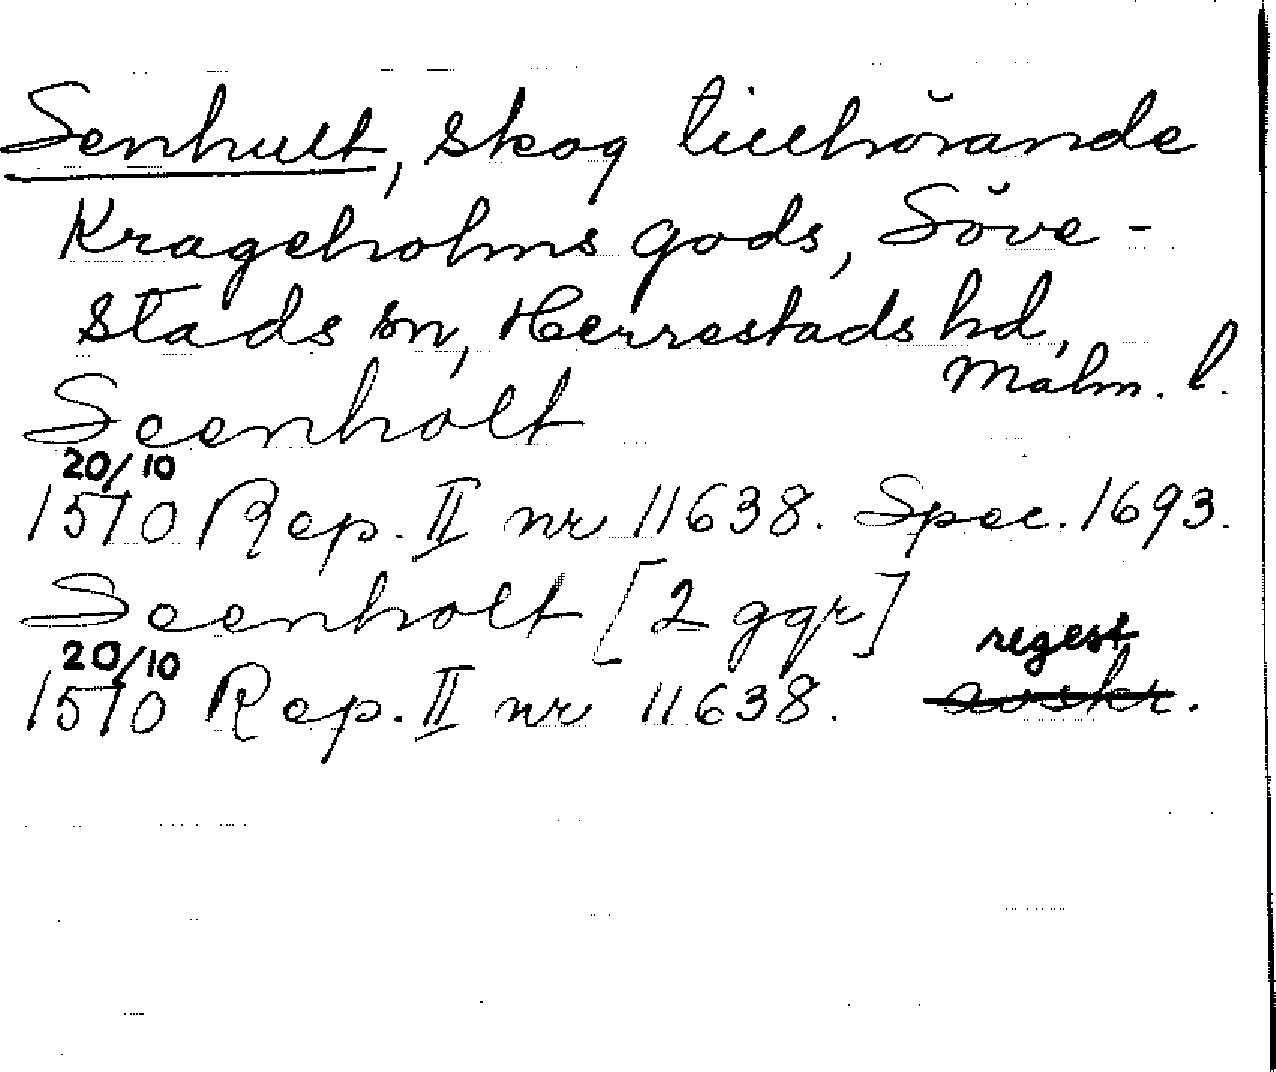 Senhult, skog tillhörande
Krageholms gods, Söve-
stads sn, Herrestads hd,
Malm. l.
Seenholt
20/10
1570 Rep. II nr 11638. Spec. 1693.
Seenholt [2 ggr]
20/10 regest
1570 Rep. II nr 11638. avskr.